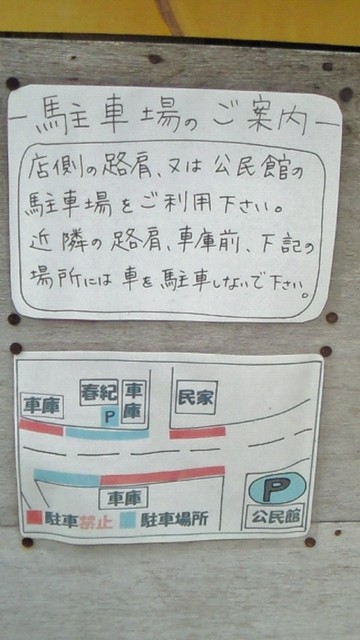 －駐車場のご案内－
店側の路肩、又は公民館の
駐車場をご利用下さい。
近隣の路肩、車庫前、下記の
場所には車を駐車しないで下さい。
車庫
春紀
P
車庫
民家
車庫
P
公民館
駐車禁止
駐車場所